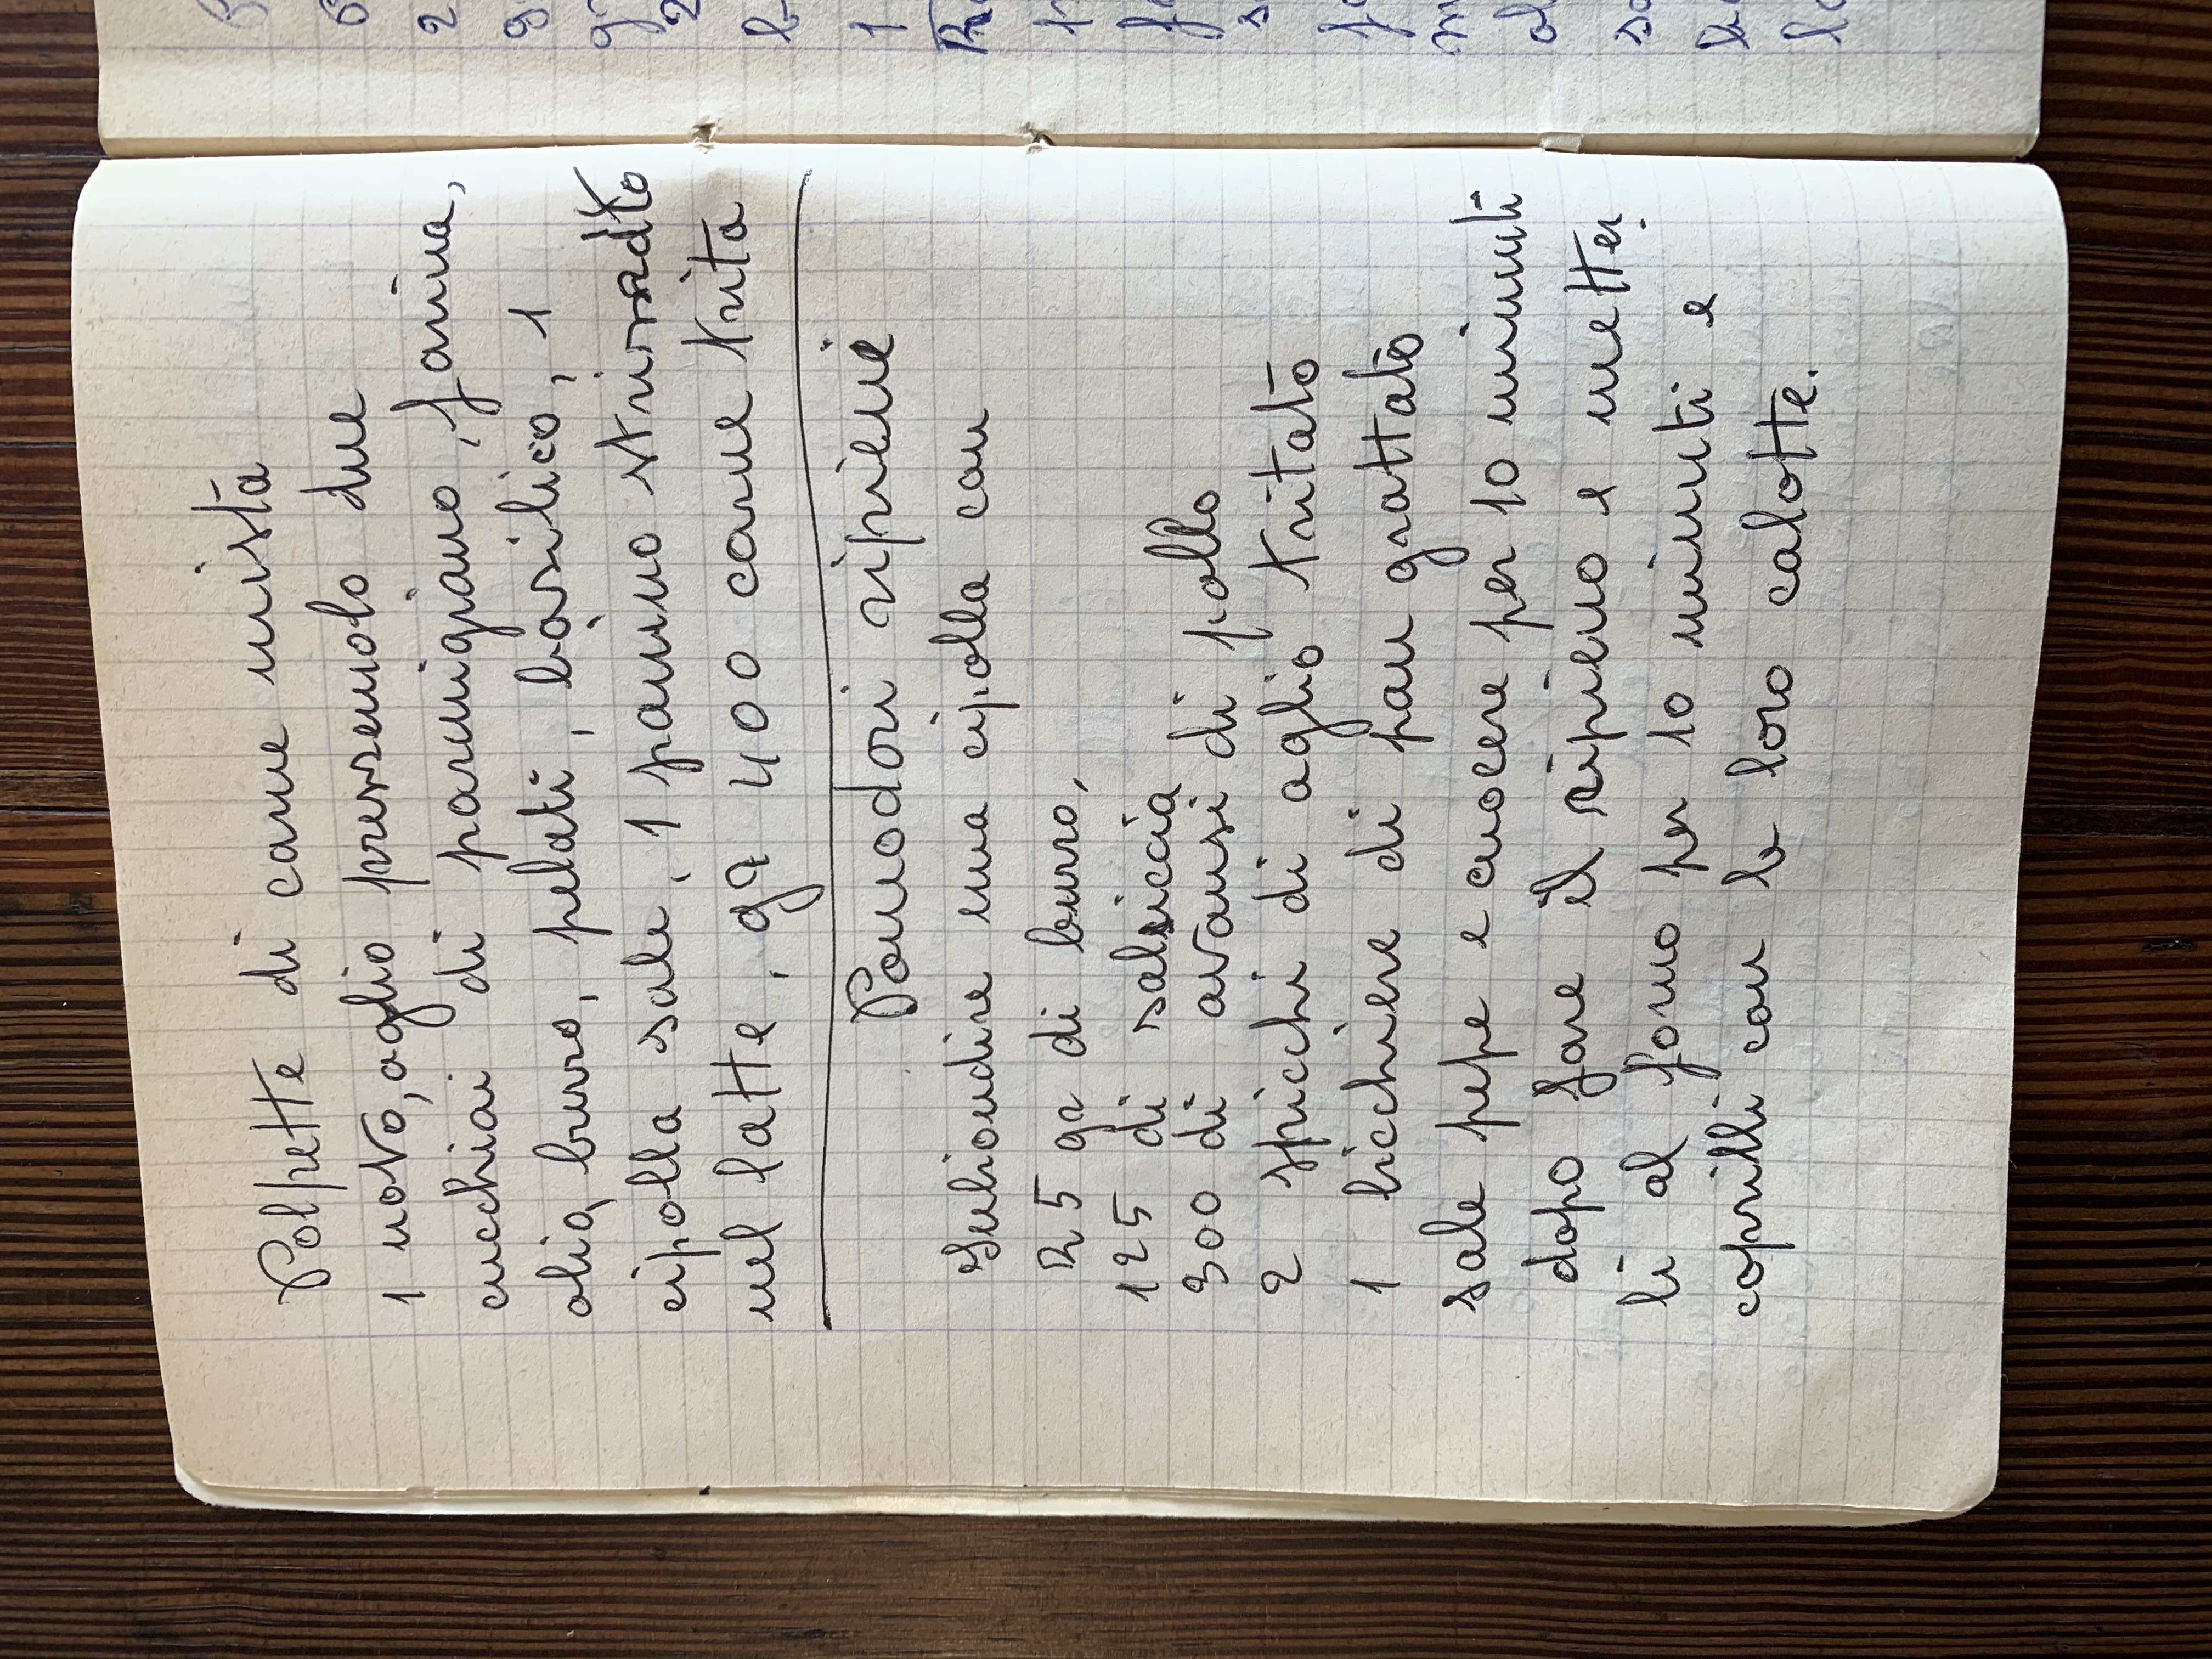 Polpette di carne mista
1 uovo, aglio prezzemolo due
cucchiai di parmigiano, farina,
olio, burro, pelati, basilico, 1
cipolla sale, 1 panino strizzato
nel latte, gr 400 carne trita
Pomodori ripieni
Inbiondire una cipolla con
25 gr di burro,
125 di salsiccia
300 di avansi di pollo
2 spicchi di aglio tritato
1 bicchiere di pan grattato
sale pepe e cuocere per 10 minuti
dopo fare il ripieno e metter
li al forno per 10 minuti e
coprilli con le loro calotte.